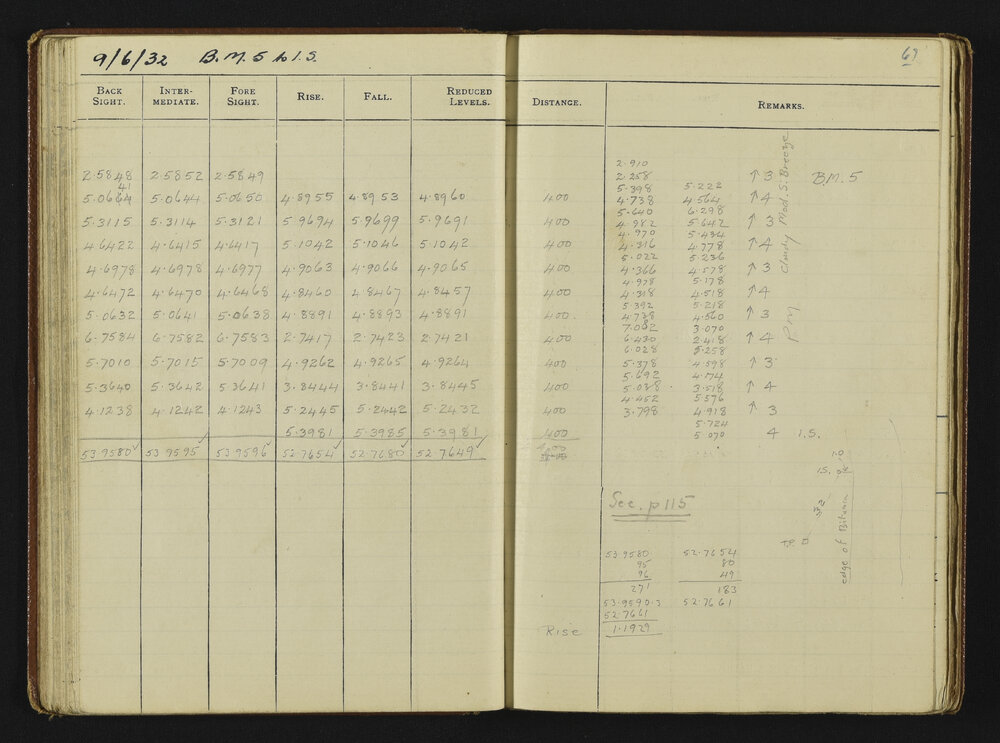 9/6/32 B.M. 5 to I.S. 69
BACK SIGHT. INTER-MEDIATE. FORE SIGHT. RISE. FALL. REDUCED LEVELS. DISTANCE. REMARKS.
2.910
2.5848 2.5852 2.5849 2.258 ↑ 3 B.M. 5
41 5.398 5.222
5.0644 5.0644 5.0650 4.8955 4.8953 4.8960 400 4.738 4.564 ↑ 4
5.640 6.298
5.3115 5.3114 5.3121 5.9694 5.9699 5.9691 400 4.982 5.642 ↑ 3
4.970 5.434
4.6422 4.6415 4.6417 5.1042 5.1046 5.1042 400 4.316 4.778 ↑ 4
5.022 5.236
4.6978 4.6978 4.6977 4.9063 4.9066 4.9065 400 4.366 4.578 ↑ 3
4.978 5.178
4.6472 4.6470 4.6468 4.8460 4.8467 4.8457 400 4.318 4.518 ↑ 4
5.392 5.218
5.0632 5.0641 5.0638 4.8891 4.8893 4.8891 400. 4.738 4.560 ↑ 3
7.082 3.070
6.7584 6.7582 6.7583 2.7417 2.7423 2.7421 400 6.430 2.418 ↑ 4
6.028 5.258
5.7010 5.7015 5.7009 4.9262 4.9265 4.9264 400 5.378 4.598 ↑ 3
5.692 4.174
5.3640 5.3642 5.3641 3.8444 3.8441 3.8445 400 5.038 3.518 ↑ 4
4.452 5.576
4.1238 4.1242 4.1243 5.2445 5.2442 5.2432 400 3.798 4.918 ↑ 3
5.724
5.3981 5.3985 5.3981 400 5.070 4 I.S.
53.9580 ✓ 53.9595 ✓ 53.9596 ✓ 52.7654 ✓ 52.7680 ✓ 52.7649 ✓
Cloudy Mod. S. Breeze
PM
I.S.
edge of Bitumen
See. p 115
T.P.
53.9580 52.7654
95 80
96 49
271 183
53.9590.3 52.7661
52.7661
Rise 1.1929